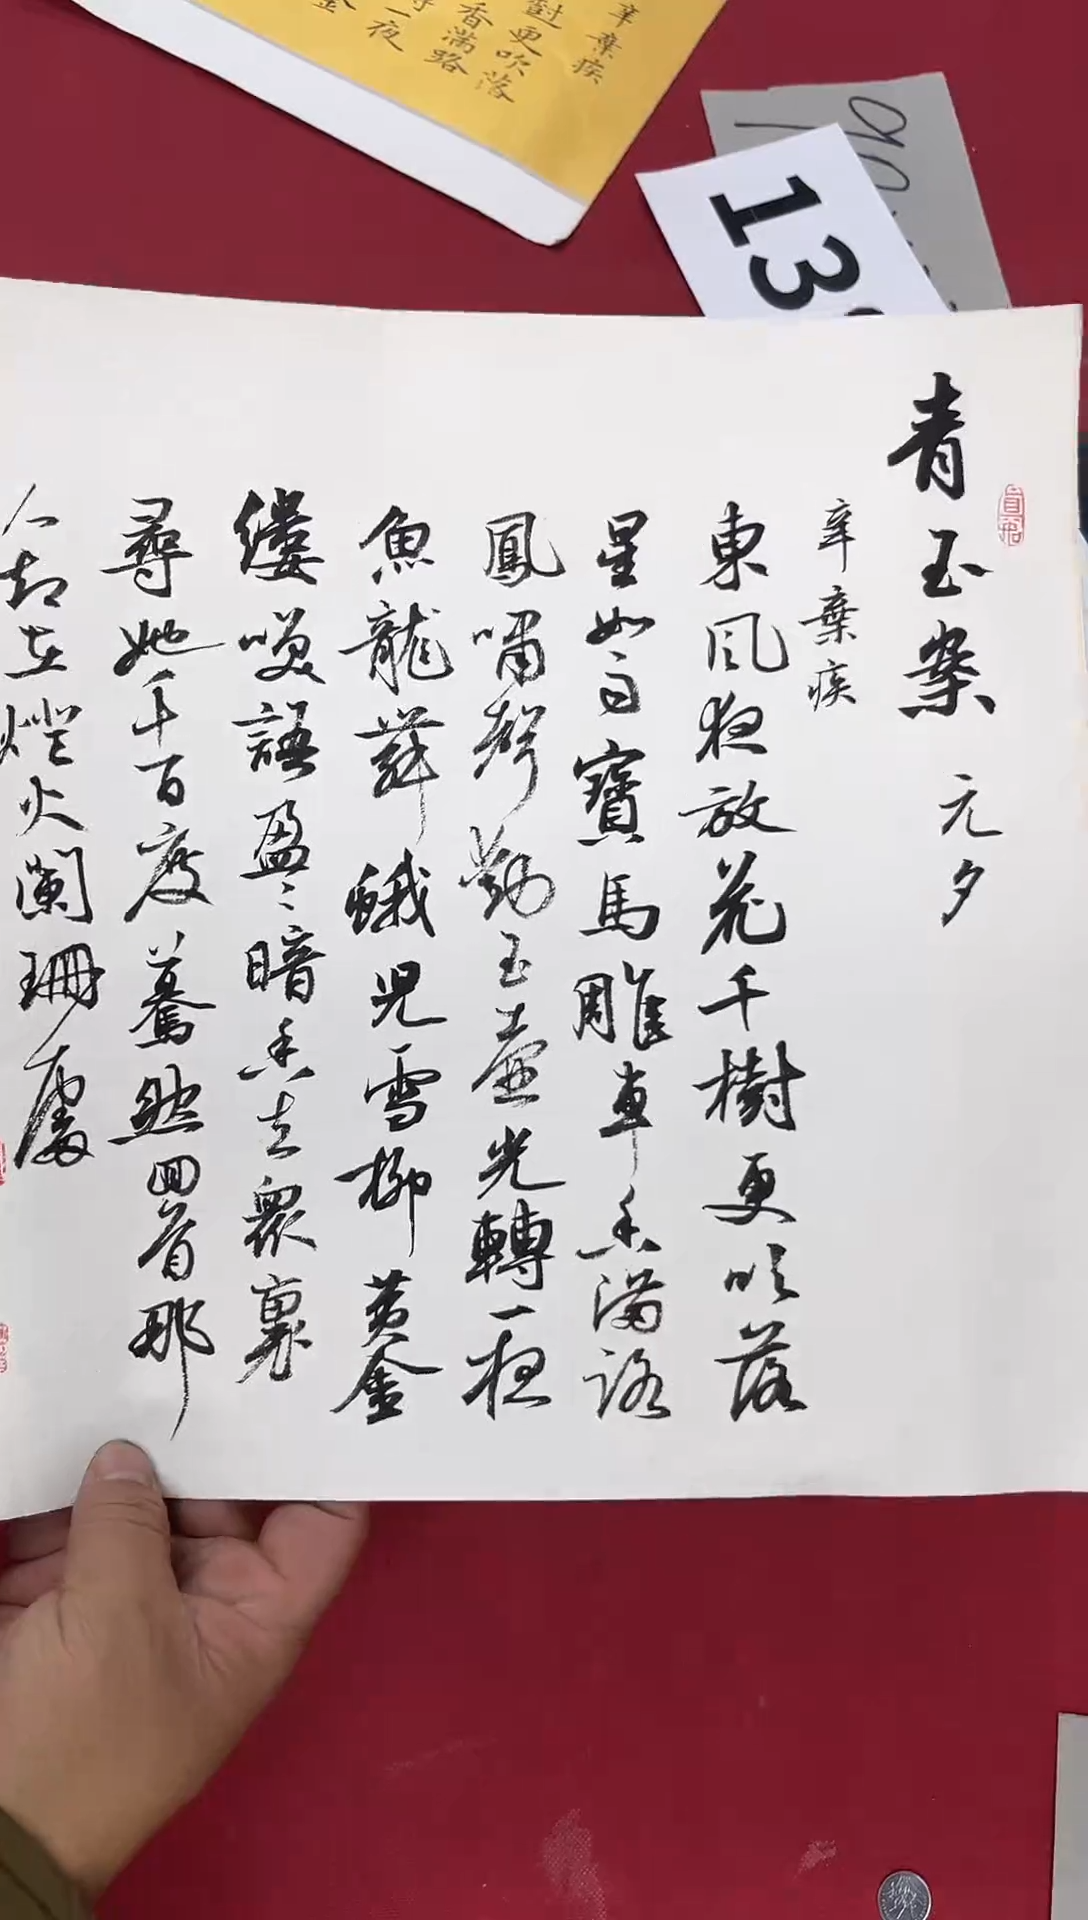 辛棄疾
更吹落
香滿路
一夜
金
13
青玉案 元夕
辛棄疾
東風夜放花千樹更吹落
星如雨寶馬雕車香滿路
鳳嘯聲動玉壺光轉一夜
魚龍舞蛾兒雪柳黃金
縷咲語盈〻暗香去眾裏
尋她千百度驀然回首那
人卻在燈火闌珊處